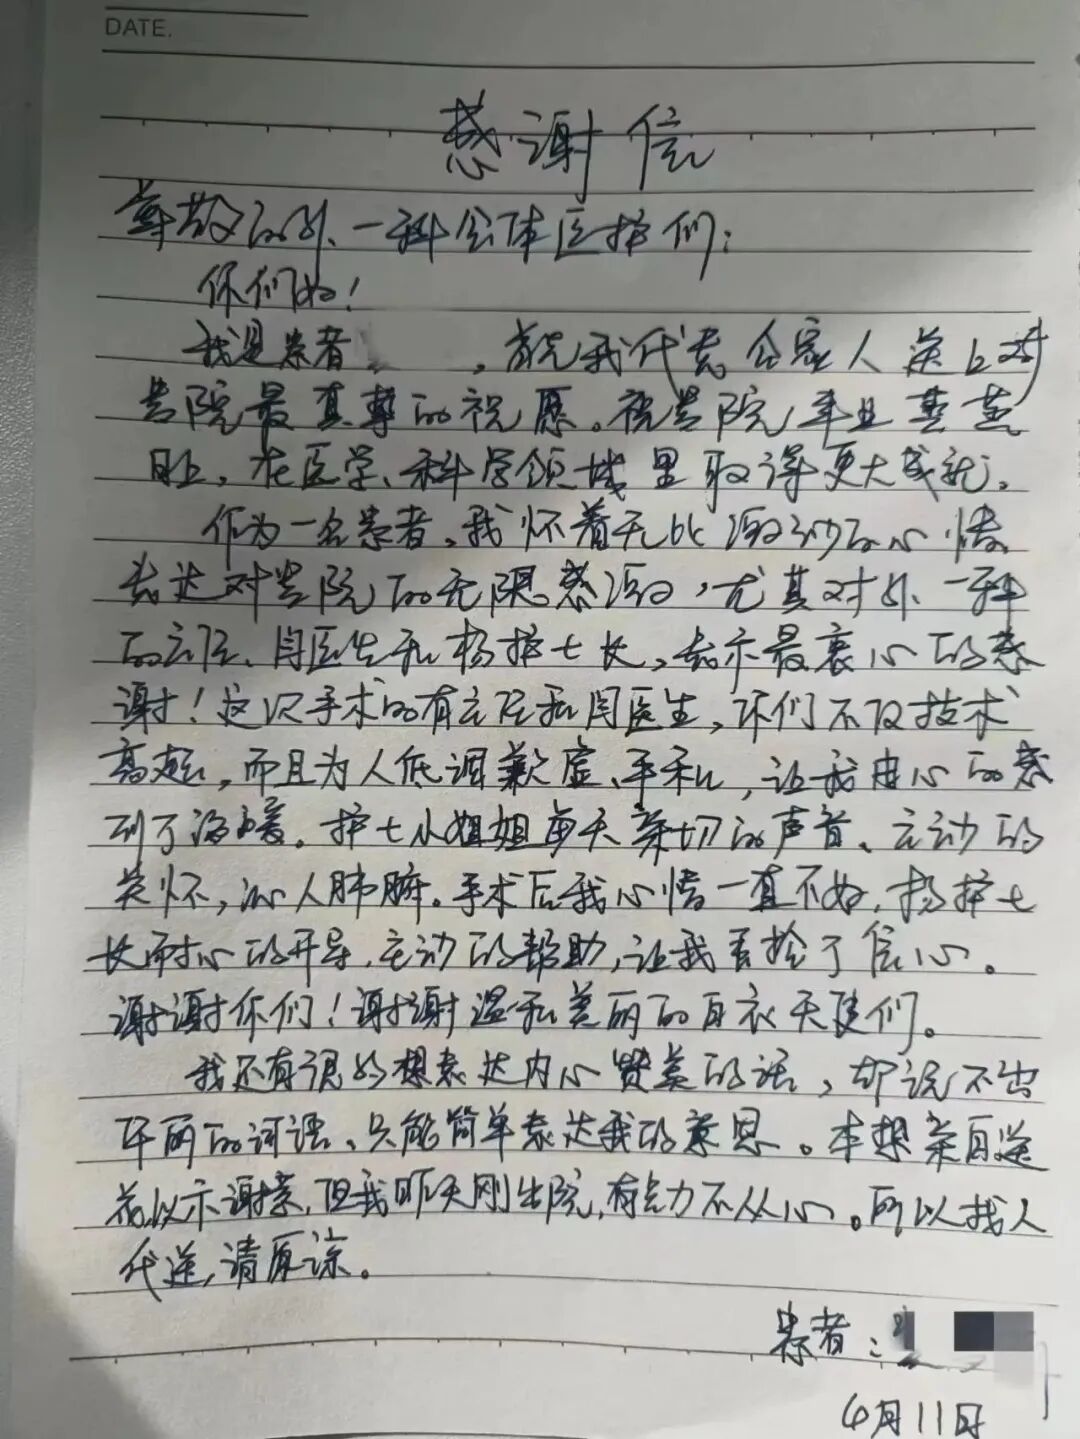 DATE.
感谢信
尊敬的外一科全体医护们：
你们好！
我是患者，首先我代表全家人送上对
贵院最真挚的祝愿。祝贵院事业蒸蒸
日上，在医学、科学领域里取得更大成就。
作为一名患者，我怀着无比激动的心情
表达对贵院的无限感激，尤其对外一科
的主任、闫医生和杨护士长，表示最衷心的感
谢！这次手术的有主任和闫医生，你们不仅技术
高超，而且为人低调歉虚、平和，让我由心的感
到了温暖。护士小姐姐每天亲切的声音、主动的
关怀，沁人肺腑。手术后我心情一直不好，杨护士
长耐心的开导，主动的帮助，让我重拾了信心。
谢谢你们！谢谢温和美丽的白衣天使们。
我还有很多想表达内心赞美的话，却说不出
华丽的词语、只能简单表达我的意思。本想亲自送
花以示谢意，但我昨天刚出院，有点力不从心。所以找人
代送，请原谅。
患者：
4月11日